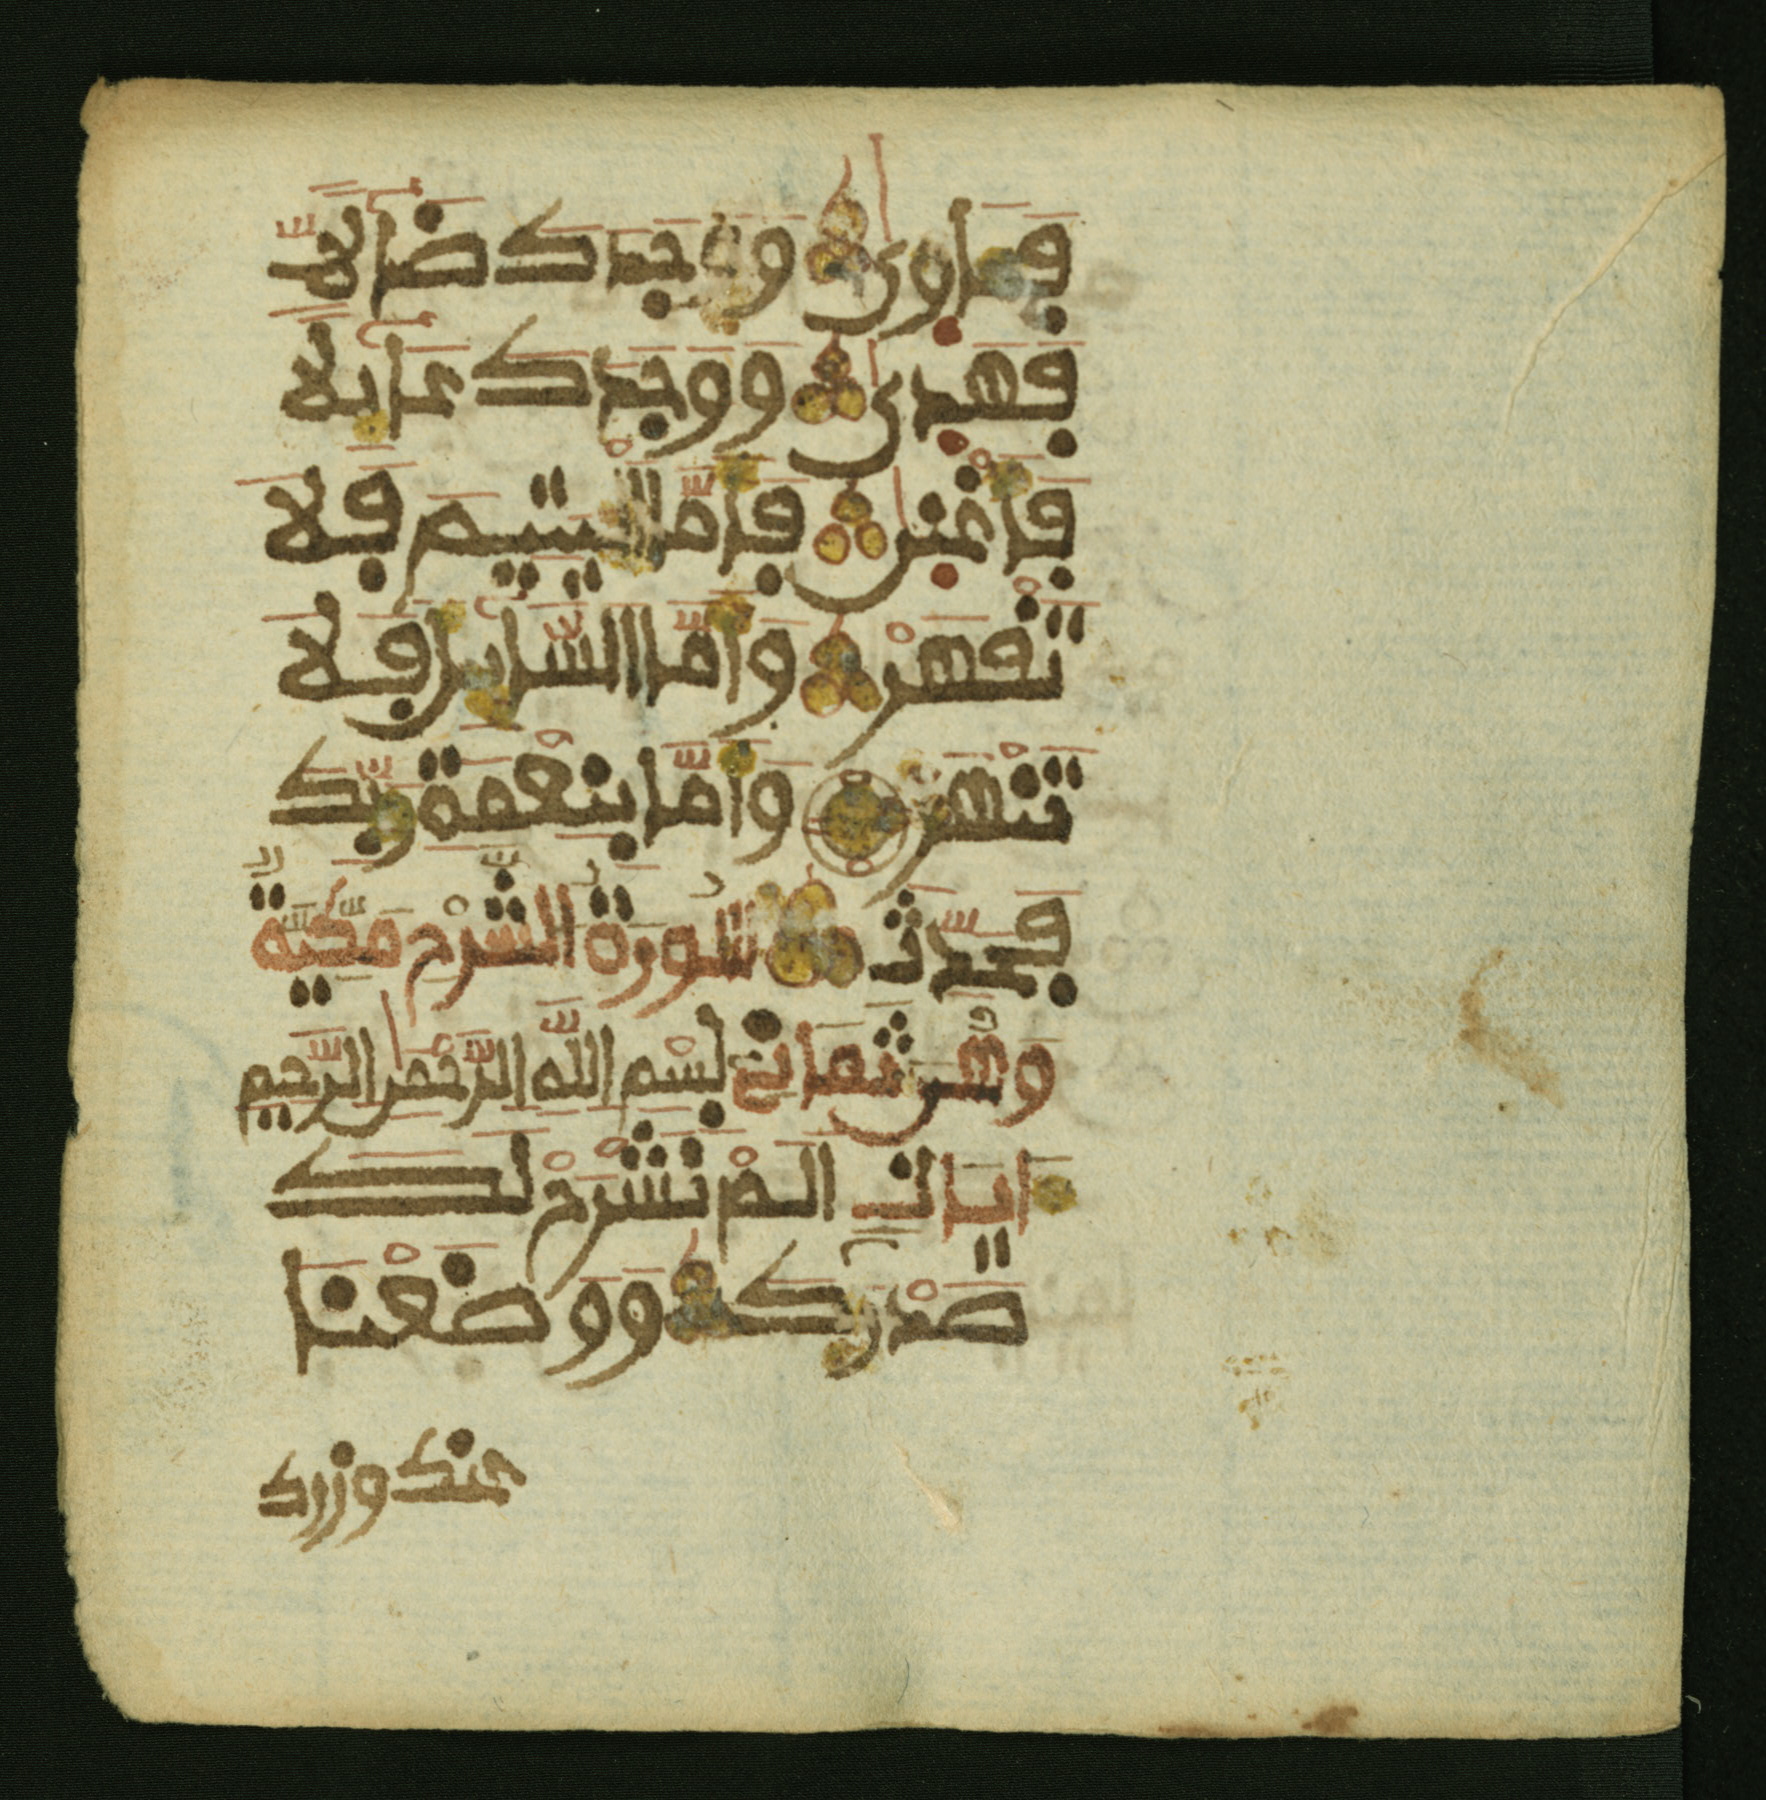 فـَٔاوى ووجدك ضالا
فهدى ووجدك عايلا
فأغنى فأما اليتيم فلا
تقهر وأما السايل فلا
تنهر وأما بنعمة ربك
فحدث سورة الشرح مكية
وهي ثماني بسم الله الرحمن الرحيم
ايات الم نشرح لك
صدرك ووضعنا
عنك وزرك